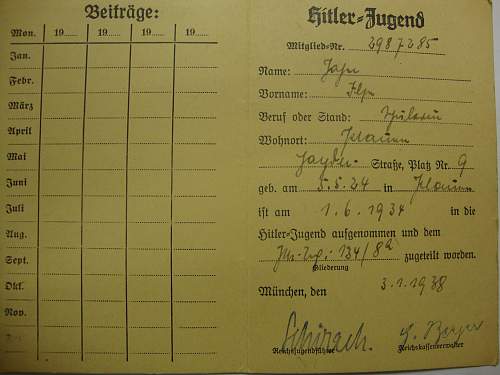 Beiträge:
Mon. 19...... 19...... 19...... 19......
Jan.
Febr.
März
April
Mai
Juni
Juli
Aug.
Sept.
Okt.
Nov.
Hitler-Jugend
Mitglied-Nr. 2987285
Name:
Vorname:
Beruf oder Stand:
Wohnort:
Straße, Platz Nr. 9
geb. am 5.5.24 in
ist am 1.6.1934 in die
Hitler-Jugend aufgenommen und dem
134/8a zugeteilt worden.
Gliederung
München, den 3.1.1938
Schirach.
Reichsjugendführer Reichskassenverwalter